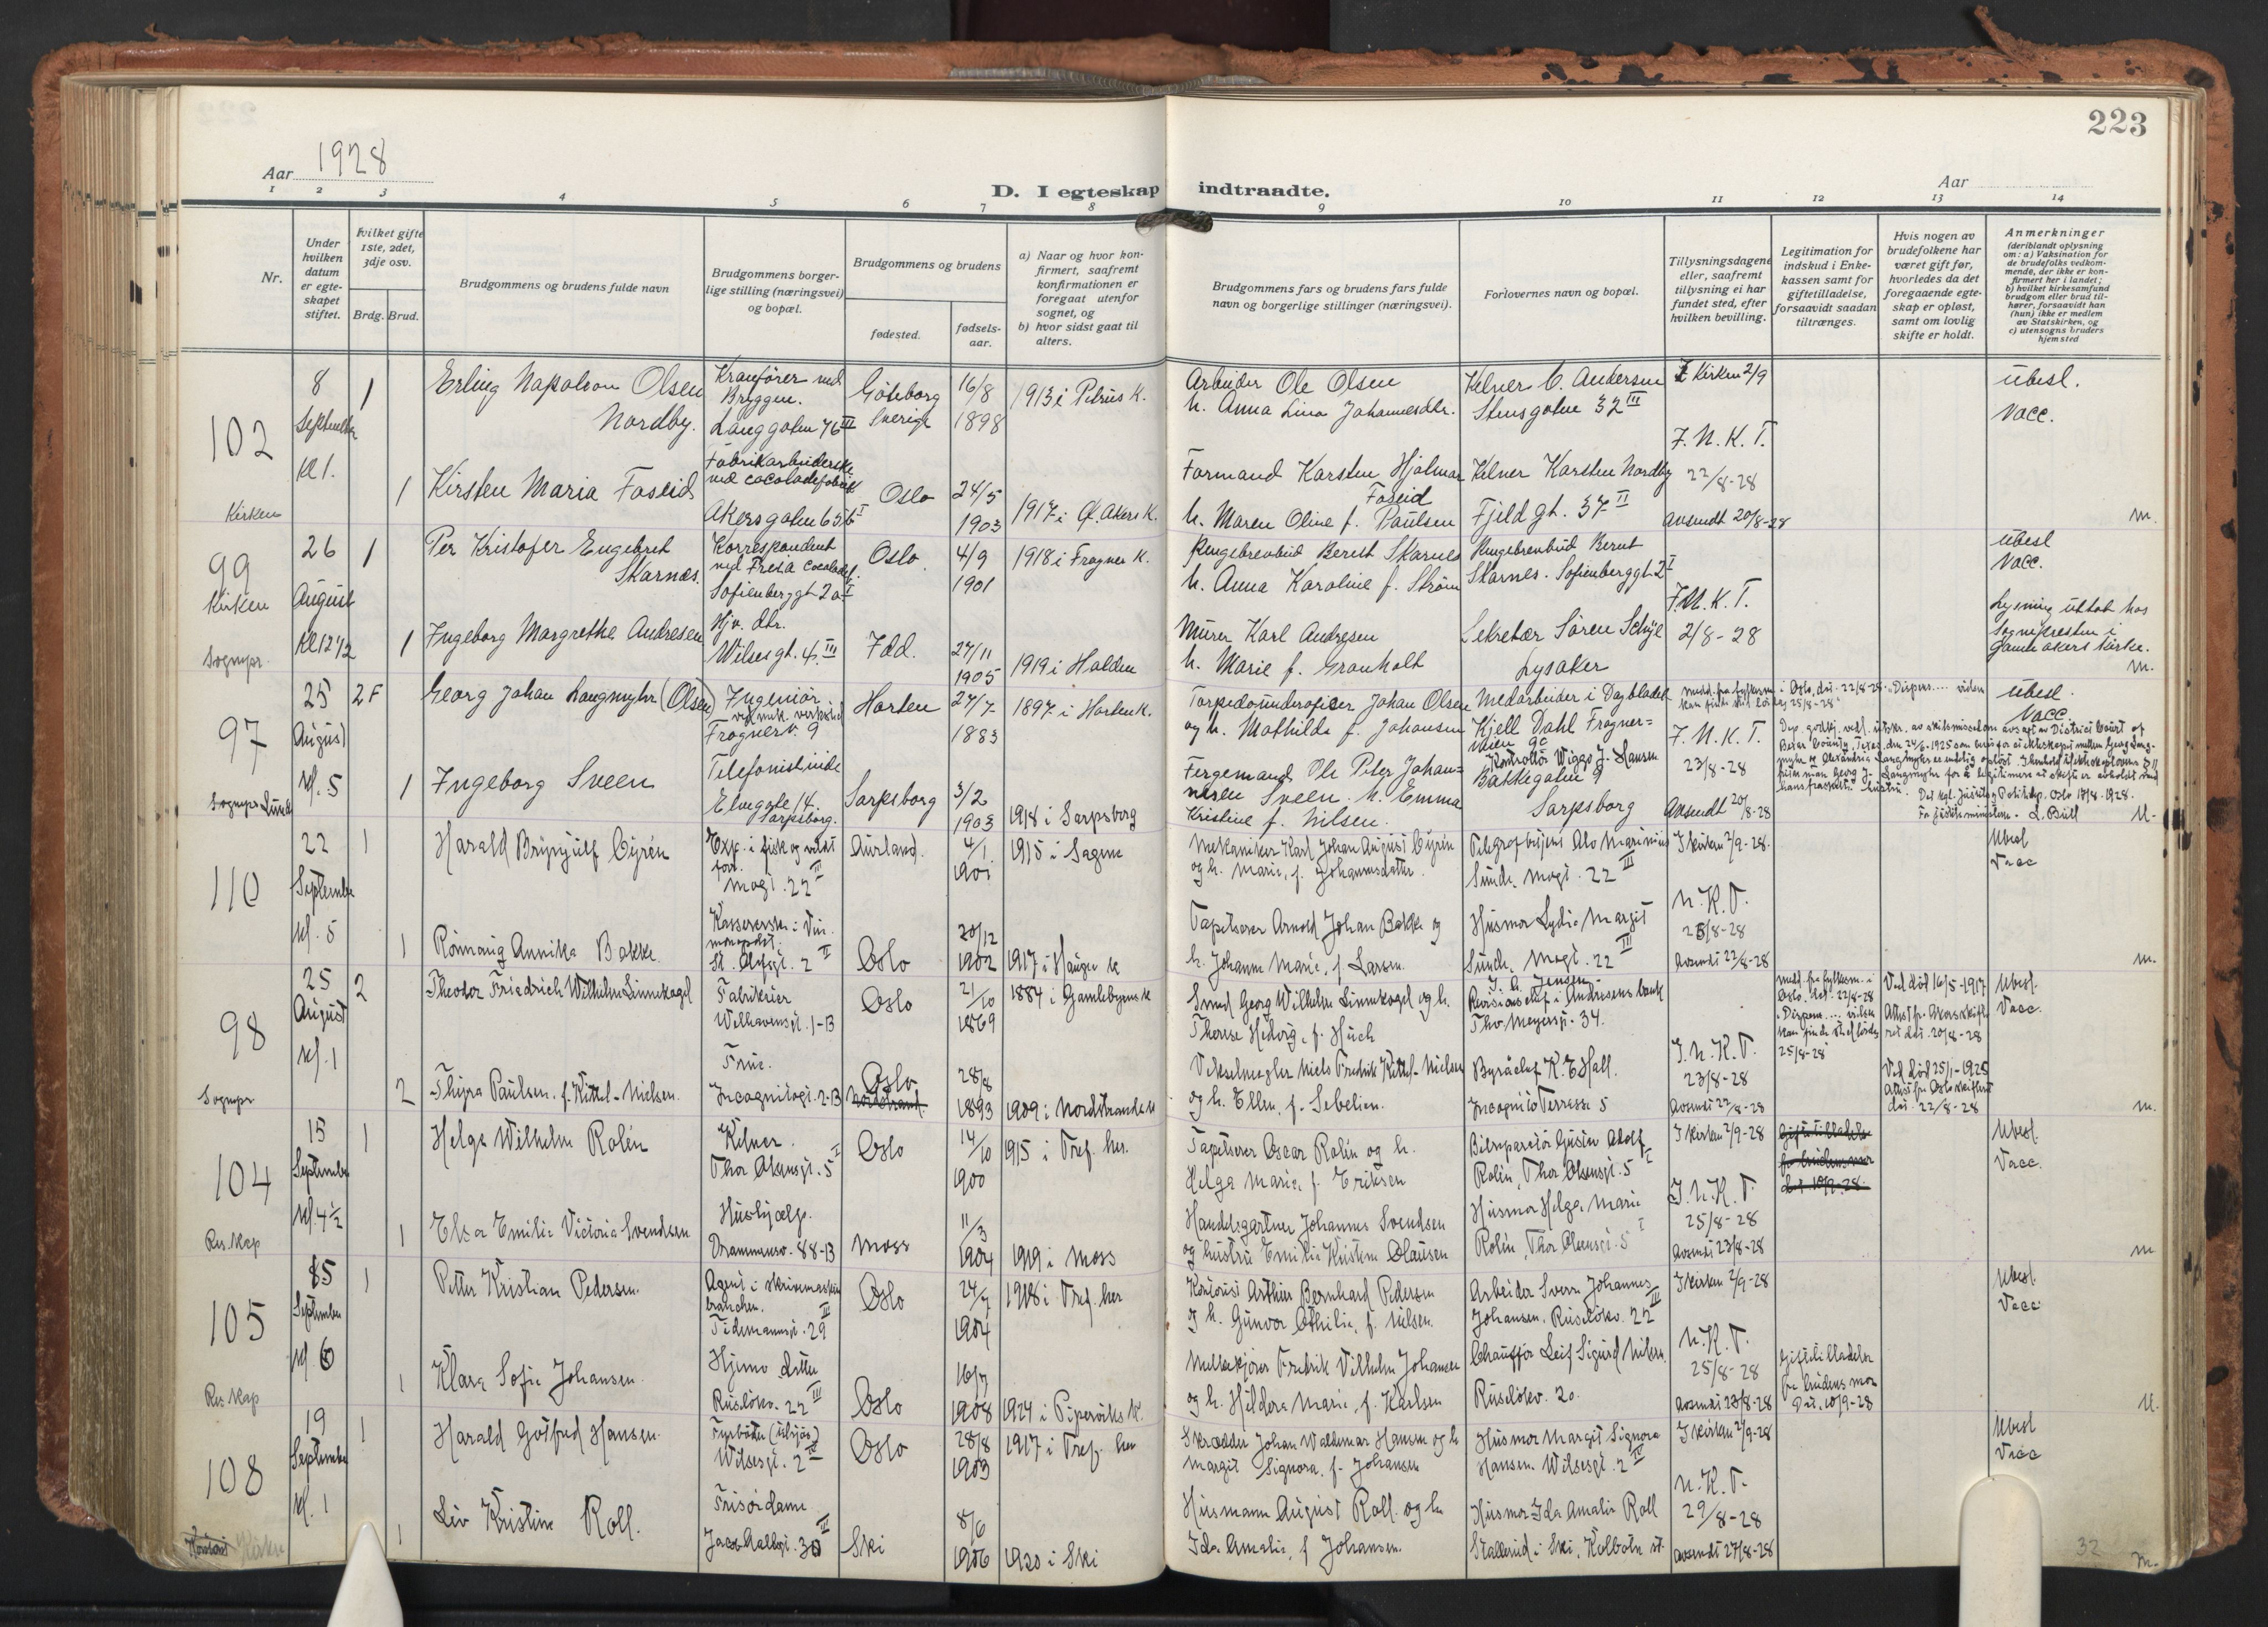 223
Aar 1928
D. I egteskap indtraadte.
Aar
1 2 3 4 5 6 7 8 9 10 11 12 13 14
Nr.
Under hvilken datum er egte-skapet stiftet.
Hvilket gifte 1ste, 2det, 3dje osv.
Brdg. Brud.
Brudgommens og brudens fulde navn
Brudgommens borger-lige stilling (næringsvei) og bopæl.
Brudgommens og brudens
fødested.
fødsels-aar.
a) Naar og hvor kon-firmert, saafremt konfirmationen er foregaat utenfor sognet, og
b) hvor sidst gaat til alters.
Brudgommens fars og brudens fars fulde navn og borgerlige stillinger (næringsvei).
Forlovernes navn og bopæl.
Tillysningsdagene eller, saafremt tillysning ei har fundet sted, efter hvilken bevilling.
Legitimation for indskud i Enke-kassen samt for giftetilladelse, forsaavidt saadan tiltrænges.
Hvis nogen av brudefolkene har været gift før, hvorledes da det foregaaende egte-skap er opløst, samt om lovlig skifte er holdt.
Anmerkninger
(deriblandt oplysning om: a) Vaksination for de brudefolks vedkom-mende, der ikke er kon-firmert her i landet, b) hvilket kirkesamfund brudgom eller brud til-hører, forsaavidt han (hun) ikke er medlem av Statskirken, og c) utensogns bruders hjemsted
102
Kirken
8 September Kl 1.
1
Erling Napoleon Olsen Nordby.
Kranfører ved Bryggen.
Langgaten 76 III
Göteborg Sverige
16/8 1898
1913 i Petrus K.
Arbeider Ole Olsen
h. Anna Lina Johannesdtr.
Kelner C. Andersen
Stensgaten 32 III
I Kirken 2/9
ubesl.
Vacc.
1
Kirsten Maria Foseid
Fabrikarbeiderske ved cocoladefabrik
Akersgaten 65 b I
Oslo
24/5 1903
1917 i G. Akers K.
Formand Karsten Hjalmar Foseid
h. Maren Oline f. Paulsen
Kelner Karsten Nordby
Fjeldgt. 37 II
F. N. K. T.
22/8-28
Avsendt 20/8-28
m.
99
Kirken
Sognepr.
26 August Kl 12 1/2
1
Per Kristofer Engebret Skarnes.
Korrespondent ved Freia Cocoladef.
Sofienberggt 2a I
Oslo.
4/9 1901
1918 i Frogner K.
Pengebrevbud Bernt Skarnes
h. Anna Karoline f. Strøm
Pengebrevbud Bernt
Skarnes. Sofienberggt. 2 I
ubesl
Vacc.
1
Ingeborg Margrethe Andresen
Hjv. dtr.
Wilsesgt. 4. III
Idd.
27/11 1905
1919 i Halden
Murer Karl Andresen
h. Marie f. Granholt
Sekretær Søren Schye
Lysaker
F. N. K. T.
2/8-28
Lysning uttat hos
Sognepresten i
Gamle Akers kirke.
m.
97
Sognepr.
25 August kl. 5
2 F
Georg Johan Langmyhr (Olsen)
Ingeniør ved mek. verksted
Frognerv. 9
Horten
27/7 1883
1897 i Horten K.
Torpedounderoficer Johan Olsen
og h. Mathilde f. Johansen
Medarbeider i Dagbladet
Kjell Dahl Frogner=
veien 9c
medd. fra fylkesm. i Oslo, dat. 22/8-28. Dispens.... vielsen kan finde sted lørdag 25/8-28
ubesl.
Vacc.
1
Ingeborg Sveen
Telefonistinde
Elvegate 14. Sarpsborg.
Sarpsborg
3/2 1903
1918 i Sarpsborg
Fergemand Ole Peter Johan=
nesen Sveen. h. Emma
Kristine f. Nilsen.
Kontrollør Wiggo J. Hansen
Bakkegaten 9
Sarpsborg
F. N. K. T.
23/8-28
Avsendt 20/8-28
Det kgl. Justits og Politidep. Oslo 17/8-1928.
L. Bull
M.
110
22 September kl. 5
1
Harald Brynjulf Cyrén
Exp. i fisk og vildt forr.
Mogt. 22 III
Aurland.
4/1. 1901
1915 i Sagene
Mekaniker Karl Johan August Cyrén
og h. Marie, f. Johannesdatter.
Telegrafbetjent Alv Marinius
Sunde, Mogt. 22 III
I kirken 2/9-28.
Ubesl
Vacc
1
Rønnaug Annika Bakke.
Kassererske i Vin-monopolet.
St. Olafsgt. 2 II
Oslo
20/12 1902
1917 i Hauges K
Tapetserer Arnold Johan Bakke og
h. Johanne Marie, f. Larsen.
Husmor Lydia Margit
Sunde, Mogt. 22 III
N. K. T.
23/8-28
Avsendt 22/8-28
m.
98
Sognepr
25 August kl. 1
2
Theodor Friedrich Wilhelm Linnekogel
Fabrikeier
Welhavensgt. 1-B
Oslo
21/10 1869
1884 i Gamlebyens K
Smed Georg Wilhelm Linnekogel og h.
Therese Hedvig, f. Huch
J. C. Jensen
Revisionschef i Andresens bank
Thv. Meyersgt. 34.
medd. fra fylkesm. i
Oslo, dat. 22/8-28
Dispens... vielsen
kan finde sted lørdag
25/8-28
Ved død 16/5-1917
Attest fr. Akers skifteret dat. 20/8-28
Ubesl.
Vacc.
2
Thyra Paulsen, f. Kittel-Nielsen.
Frue.
Incognitogt. 2-B
Oslo
Nordstrand.
28/8 1893
1909 i Nordstrands K
Vekselmegler Niels Fredrik Kittel-Nielsen
og h. Ellen, f. Sebelien.
Byråchef K. E. Hall.
Incognito Terrasse 5
F. N. K. T.
23/8-28
Avsendt 22/8-28
Ved død 25/1-1925
Attest fra Oslo skifteret
dat. 22/8-28
m.
104
Res. Kap
15 September kl. 4 1/2
1
Helge Wilhelm Rolén
Kelner.
Thor Olsensgt. 5 I
Oslo
14/10 1900
1915 i Tref. her.
Tapetserer Oscar Rolén og h.
Helga Marie f. Eriksen
Bilinspectør Gustav Adolf
Rolén, Thor Olsensgt. 5 I
I kirken 2/9-28
Giftetilladelse
fra brudens mor
dat. 10/9-28.
Ubesl.
Vacc.
1
Elsa Emilie Victoria Svendsen
Hushjælp.
Drammensv. 88-B
Moss
11/3 1904
1919 i Moss
Handelsgartner Johannes Svendsen
og hustru Emilie Kristine Olausen
Husmor Helga Marie
Rolén, Thor Olsensgt. 5 I
F. N. K. T.
25/8-28
Avsendt 23/8-28
m
105
Res. Kap
15 September kl. 6
1
Petter Kristian Pedersen.
Agent i skrivemaskin
branchen.
Tidemannsgt. 29 III
Oslo
24/7 1904
1918 i Tref. her
Kontorist Arthur Bernhard Pedersen
og h. Gunvor Othilie, f. Nilsen.
Arbeider Sverre Johannes
Johansen. Ruseløkv. 22 III
I kirken 2/9-28
Ubesl.
Vacc.
1
Klara Sofie Johansen.
Hjemv. datter
Ruseløkv. 22 III
Oslo
16/7 1908
1924 i Piperviks K.
Melkekjører Fredrik Vilhelm Johansen
og h. Hildora Marie, f. Karlsen
Chauffør Leif Sigurd Nilsen.
Ruseløkv. 20.
N. K. T.
25/8-28
Avsendt 23/8-28
Giftetilladelse
fra brudens mor
Dat. 10/9-28
M.
108
19 September kl. 1
1
Harald Gotfred Hansen.
Fyrbøter (tilsjøs)
Wilsesgt. 2 IV
Oslo
28/8 1903
1917 i Tref. her
Skrædder Johan Waldemar Hansen og h
Margit Signora, f. Johansen
Husmor Margit Signora
Hansen. Wilsesgt. 2 IV
I kirken 2/9-28
Ubesl
Vacc
1
Liv Kristine Roll.
Frisørdame
Jacob Aallsgt. 30 III
Ski
8/6 1906
1920 i Ski
Husmann August Roll. og h
Ida Amalie, f Johansen.
Husmor Ida Amalie Roll
i Ski, Kolbotn st.
N. K. T.
29/8-28
Avsendt 27/8-28
32
m.